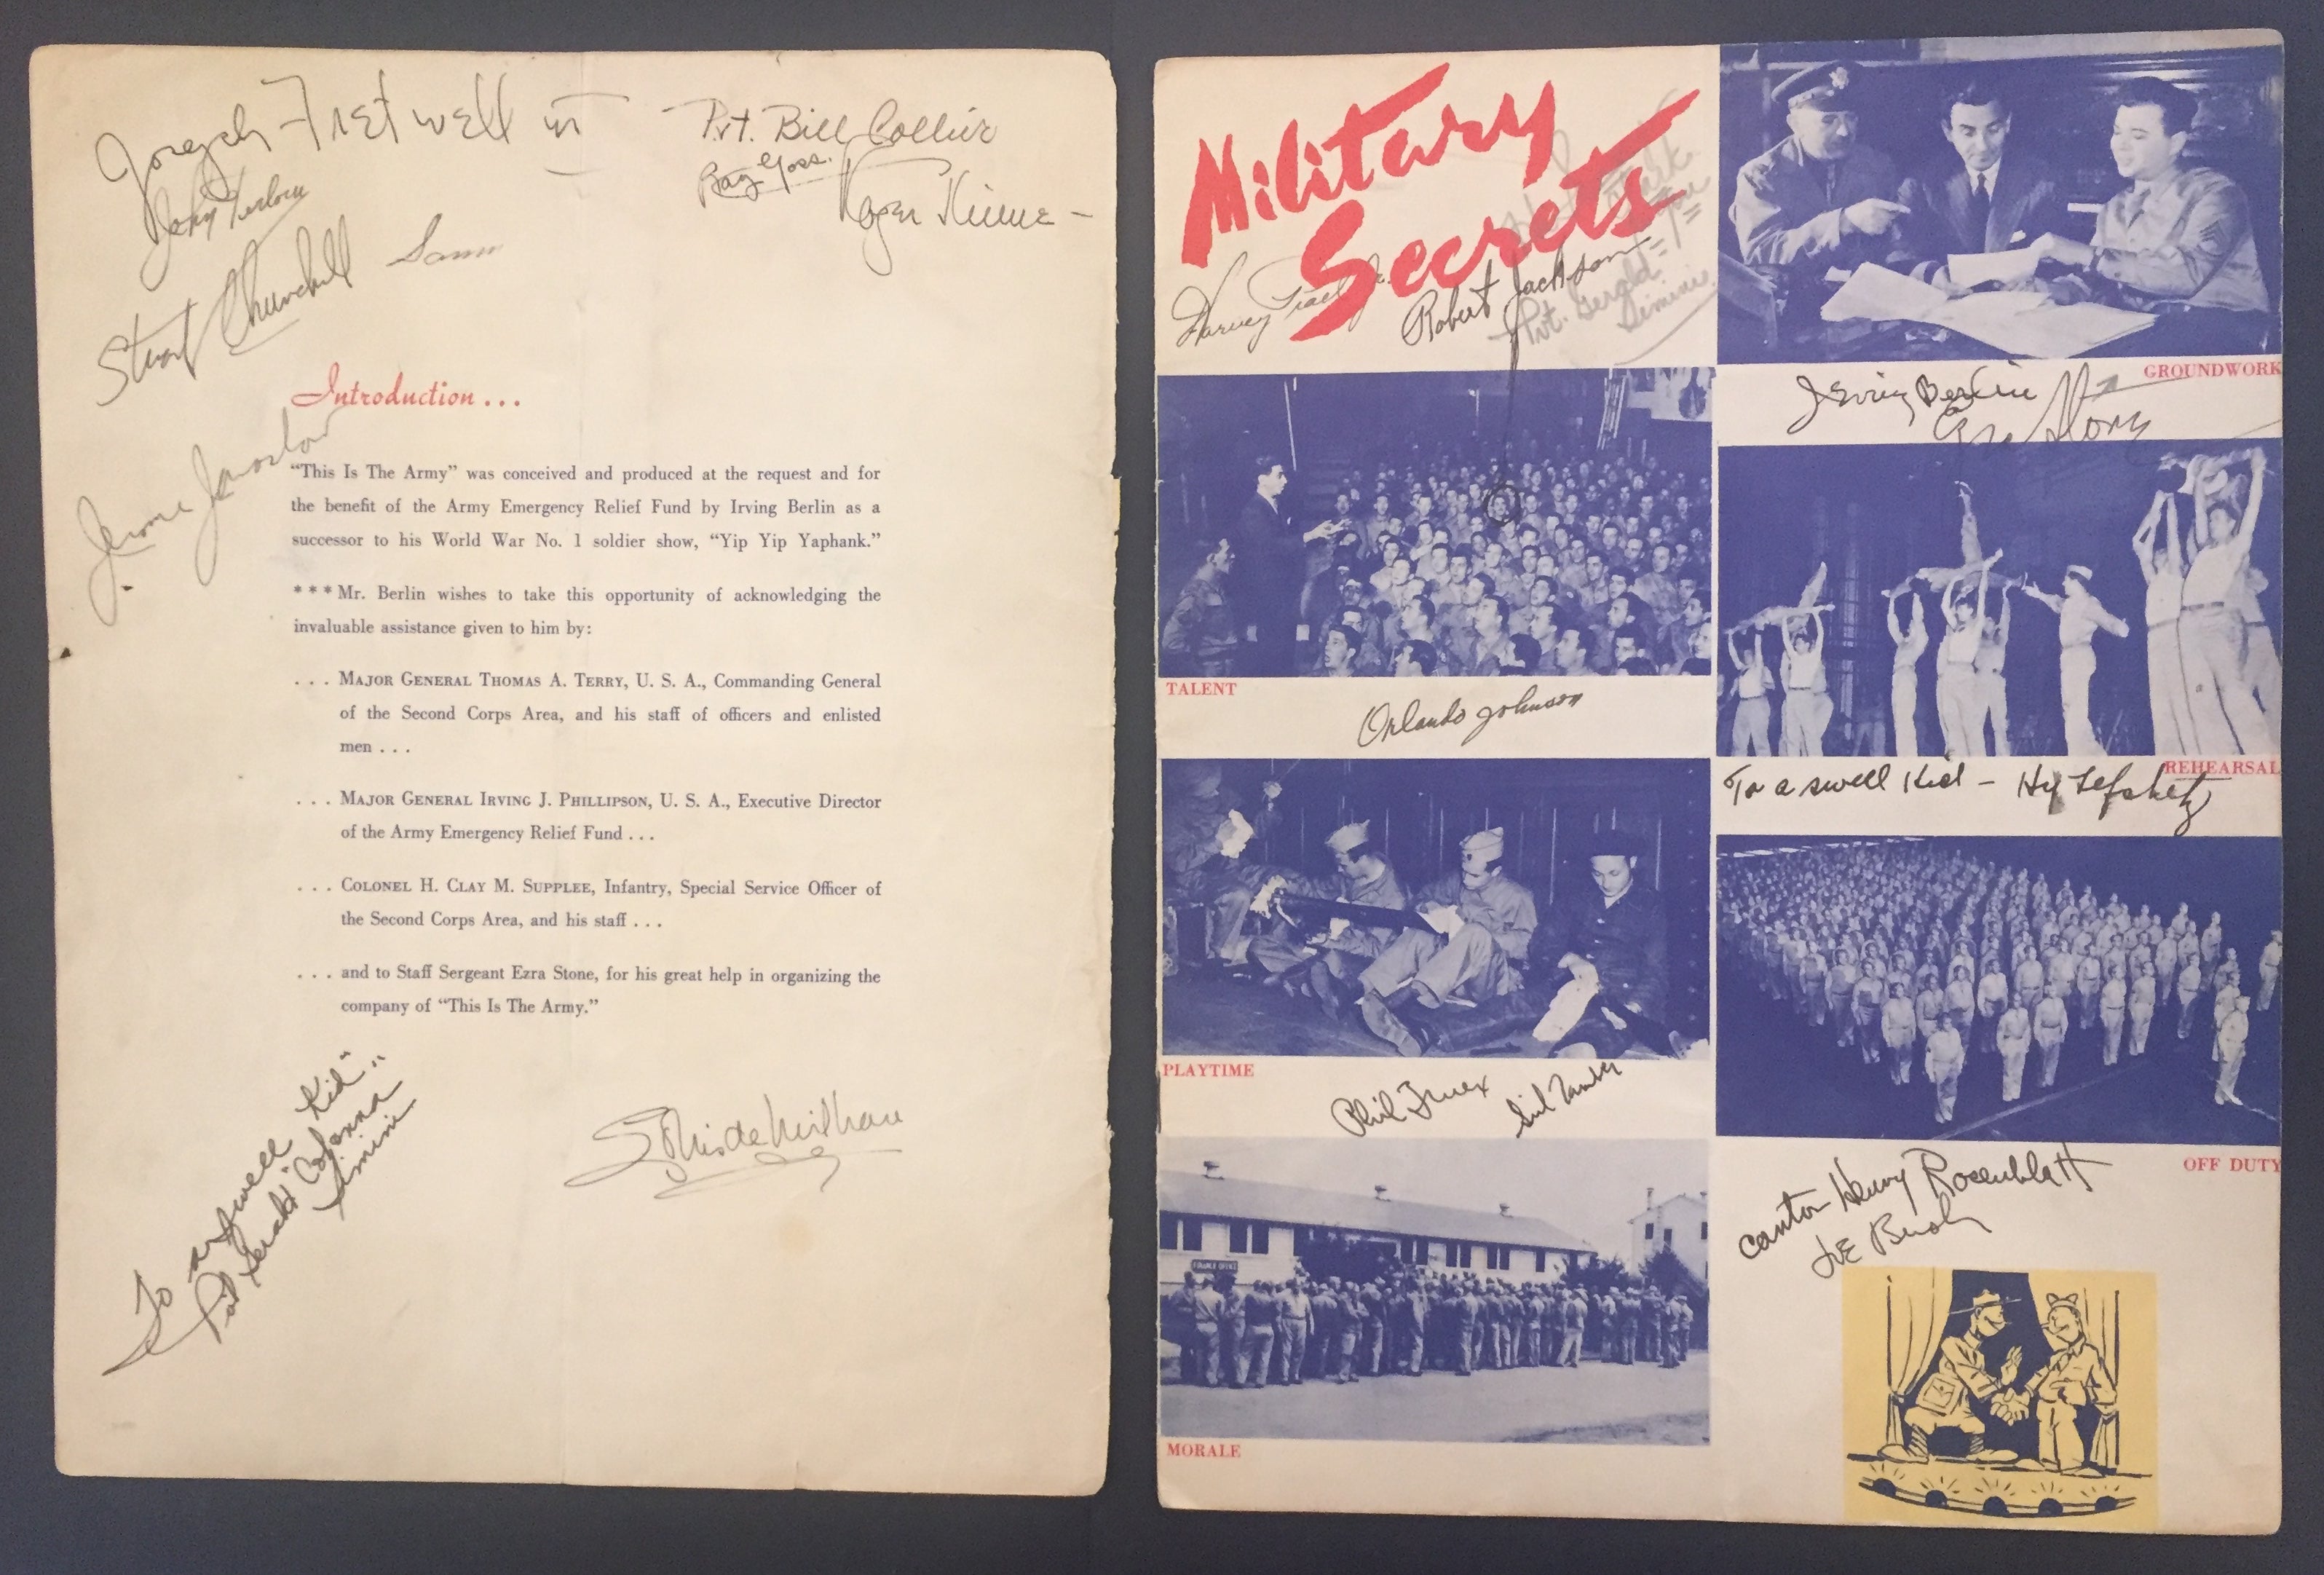 Fretwell
Pvt. Bill Collier
Ray Goss.
Roger Kinne
Stuart Churchill
Introduction...
Jerome
"This Is The Army" was conceived and produced at the request and for
the benefit of the Army Emergency Relief Fund by Irving Berlin as a
successor to his World War No. 1 soldier show, "Yip Yip Yaphank."
* * * Mr. Berlin wishes to take this opportunity of acknowledging the
invaluable assistance given to him by:
. . . MAJOR GENERAL THOMAS A. TERRY, U. S. A., Commanding General
of the Second Corps Area, and his staff of officers and enlisted
men . . .
. . . MAJOR GENERAL IRVING J. PHILLIPSON, U. S. A., Executive Director
of the Army Emergency Relief Fund . . .
. . . COLONEL H. CLAY M. SUPPLEE, Infantry, Special Service Officer of
the Second Corps Area, and his staff . . .
. . . and to Staff Sergeant Ezra Stone, for his great help in organizing the
company of "This Is The Army."
To a swell Kid"
Gerald Colonna
Simini
Military
Secrets
Harvey
Robert Jackson
Pvt. Gerald
Simini
GROUNDWORK
Irving Berlin
Ezra Stone
TALENT
Orlando Johnson
REHEARSAL
To a swell Kid - Hy Lefshetz
PLAYTIME
Phil Truex
FINANCE OFFICE
MORALE
OFF DUTY
Cantor Henry Rosenblatt
Joe Bush